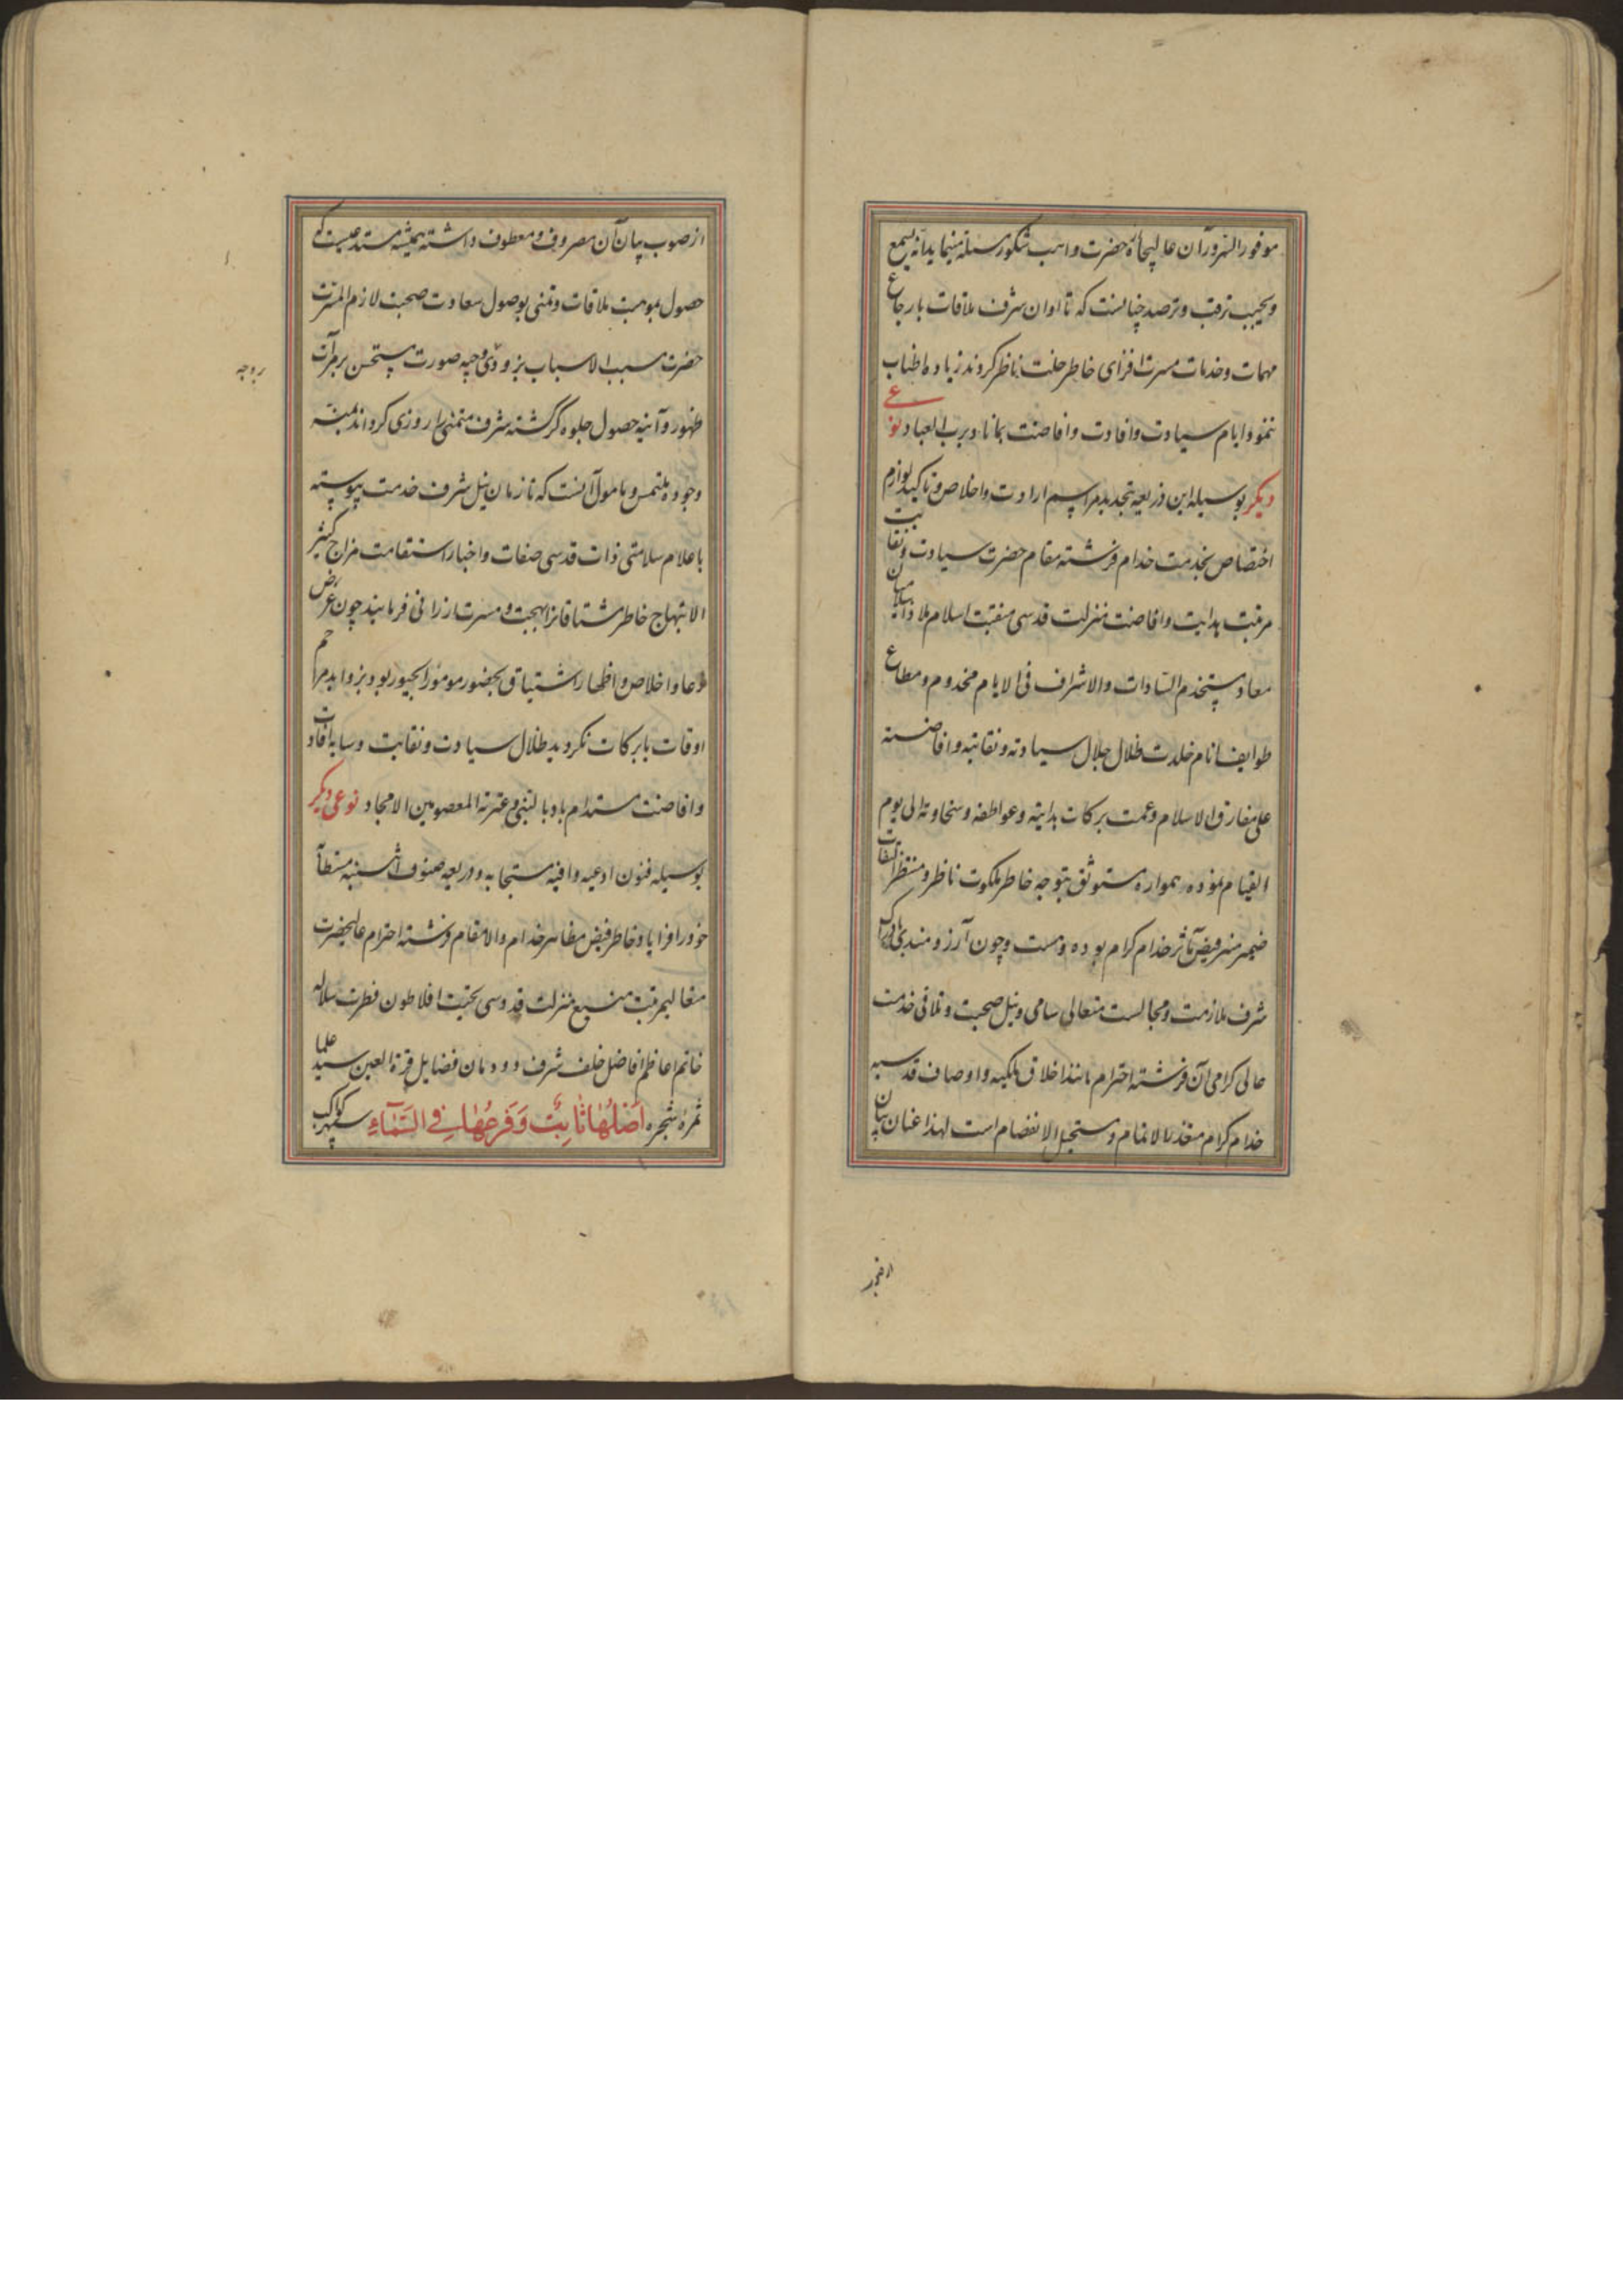 موفور السرور آن عالیجاه حضرت واهب شکور مسئلت مینماید انه یسمع
ویجیب ترقب و ترصد چنانست که تا اوان شرف ملاقات بارجاع
مهمات و خدمات مسرت افزای خاطر خلت ناظر کردند زیاده اطناب
ننمود ایام سیادت وافادت وافاضت بماناد برب العباد نوعی
دیگر بوسیله این ذریعه تجدید مراسم ارادت واخلاص و تاکید لوازم
اختصاص بخدمت خدام فرشته مقام حضرت سیادت ونقابت
مرتبت هدایت وافاضت منزلت قدسی منقبت اسلام ملاذ
معاد مستخدم السادات والاشراف فی الایام مخدوم ومطاع
طوایف انام خلدت ظلال جلال سیادته ونقابته وافاضته
علی مفارق الاسلام وعمت برکات هدایته وعواطفه وسخاوته الی یوم
القیام نموده همواره مستوثق بتوجه خاطر ملکوت ناظر ومنتظر التفات
ضمیر منیر فیض مآثر خدام کرام بوده وهست وچون آرزومندی بادراک
شرف ملازمت ومجالست متعالی سامی ونیل صحبت وتلاقی خدمت
عالی کرامی آن فرشته احترام مانند اخلاق ملکیه واوصاف قدسیه
خدام کرام متعذر الاتمام ومستحیل الانفصام است لهذا عنان بیان
از صوب بیان آن مصروف ومعطوف داشته همیشه مستدعیست که
حصول موهبت ملاقات وتمنی بوصول سعادت صحبت لازم المسرت
حضرت مسبب الاسباب بزودی وجیه صورت مستحسن بر مرآت
ظهور وآئینه حصول جلوه گر گشته شرف متمنی را روزی کرداند بمنه
وجوده ملتمس ومامول آنست که تا زمان نیل شرف خدمت پیوسته
باعلام سلامتی ذات قدسی صفات واخبار استقامت مزاج کثیر
الابتهاج خاطر مشتاقانرا بهجت ومسرت ارزانی فرمایند چون غرض
دعا واخلاص واظهار اشتیاق بحضور موفور الحبور بود بزواید مراحم
اوقات بابرکات نکردید ظلال سیادت ونقابت وسایه افادت
وافاضت مستدام باد بالنبی وعترته المعصومین الامجاد نوعی دیگر
بوسیله فنون ادعیه وافیه مستجابه وذریعه صنوف اثنیه مستطابه
خود را فرا یاد خاطر فیض مظاهر خدام والامقام فرشته احترام عالیحضرت
متعالیمرتبت منیع منزلت قدوسی تحیت افلاطون فطرت سلاله
خاتم اعاظم افاضل خلف شرف دودمان فضایل قرة العین سید علما
ثمره شجره اَصْلُهَا ثَابِتٌ وَفَرْعُهَا فِي السَّمَآءِ سپهر کواکب
از صوب